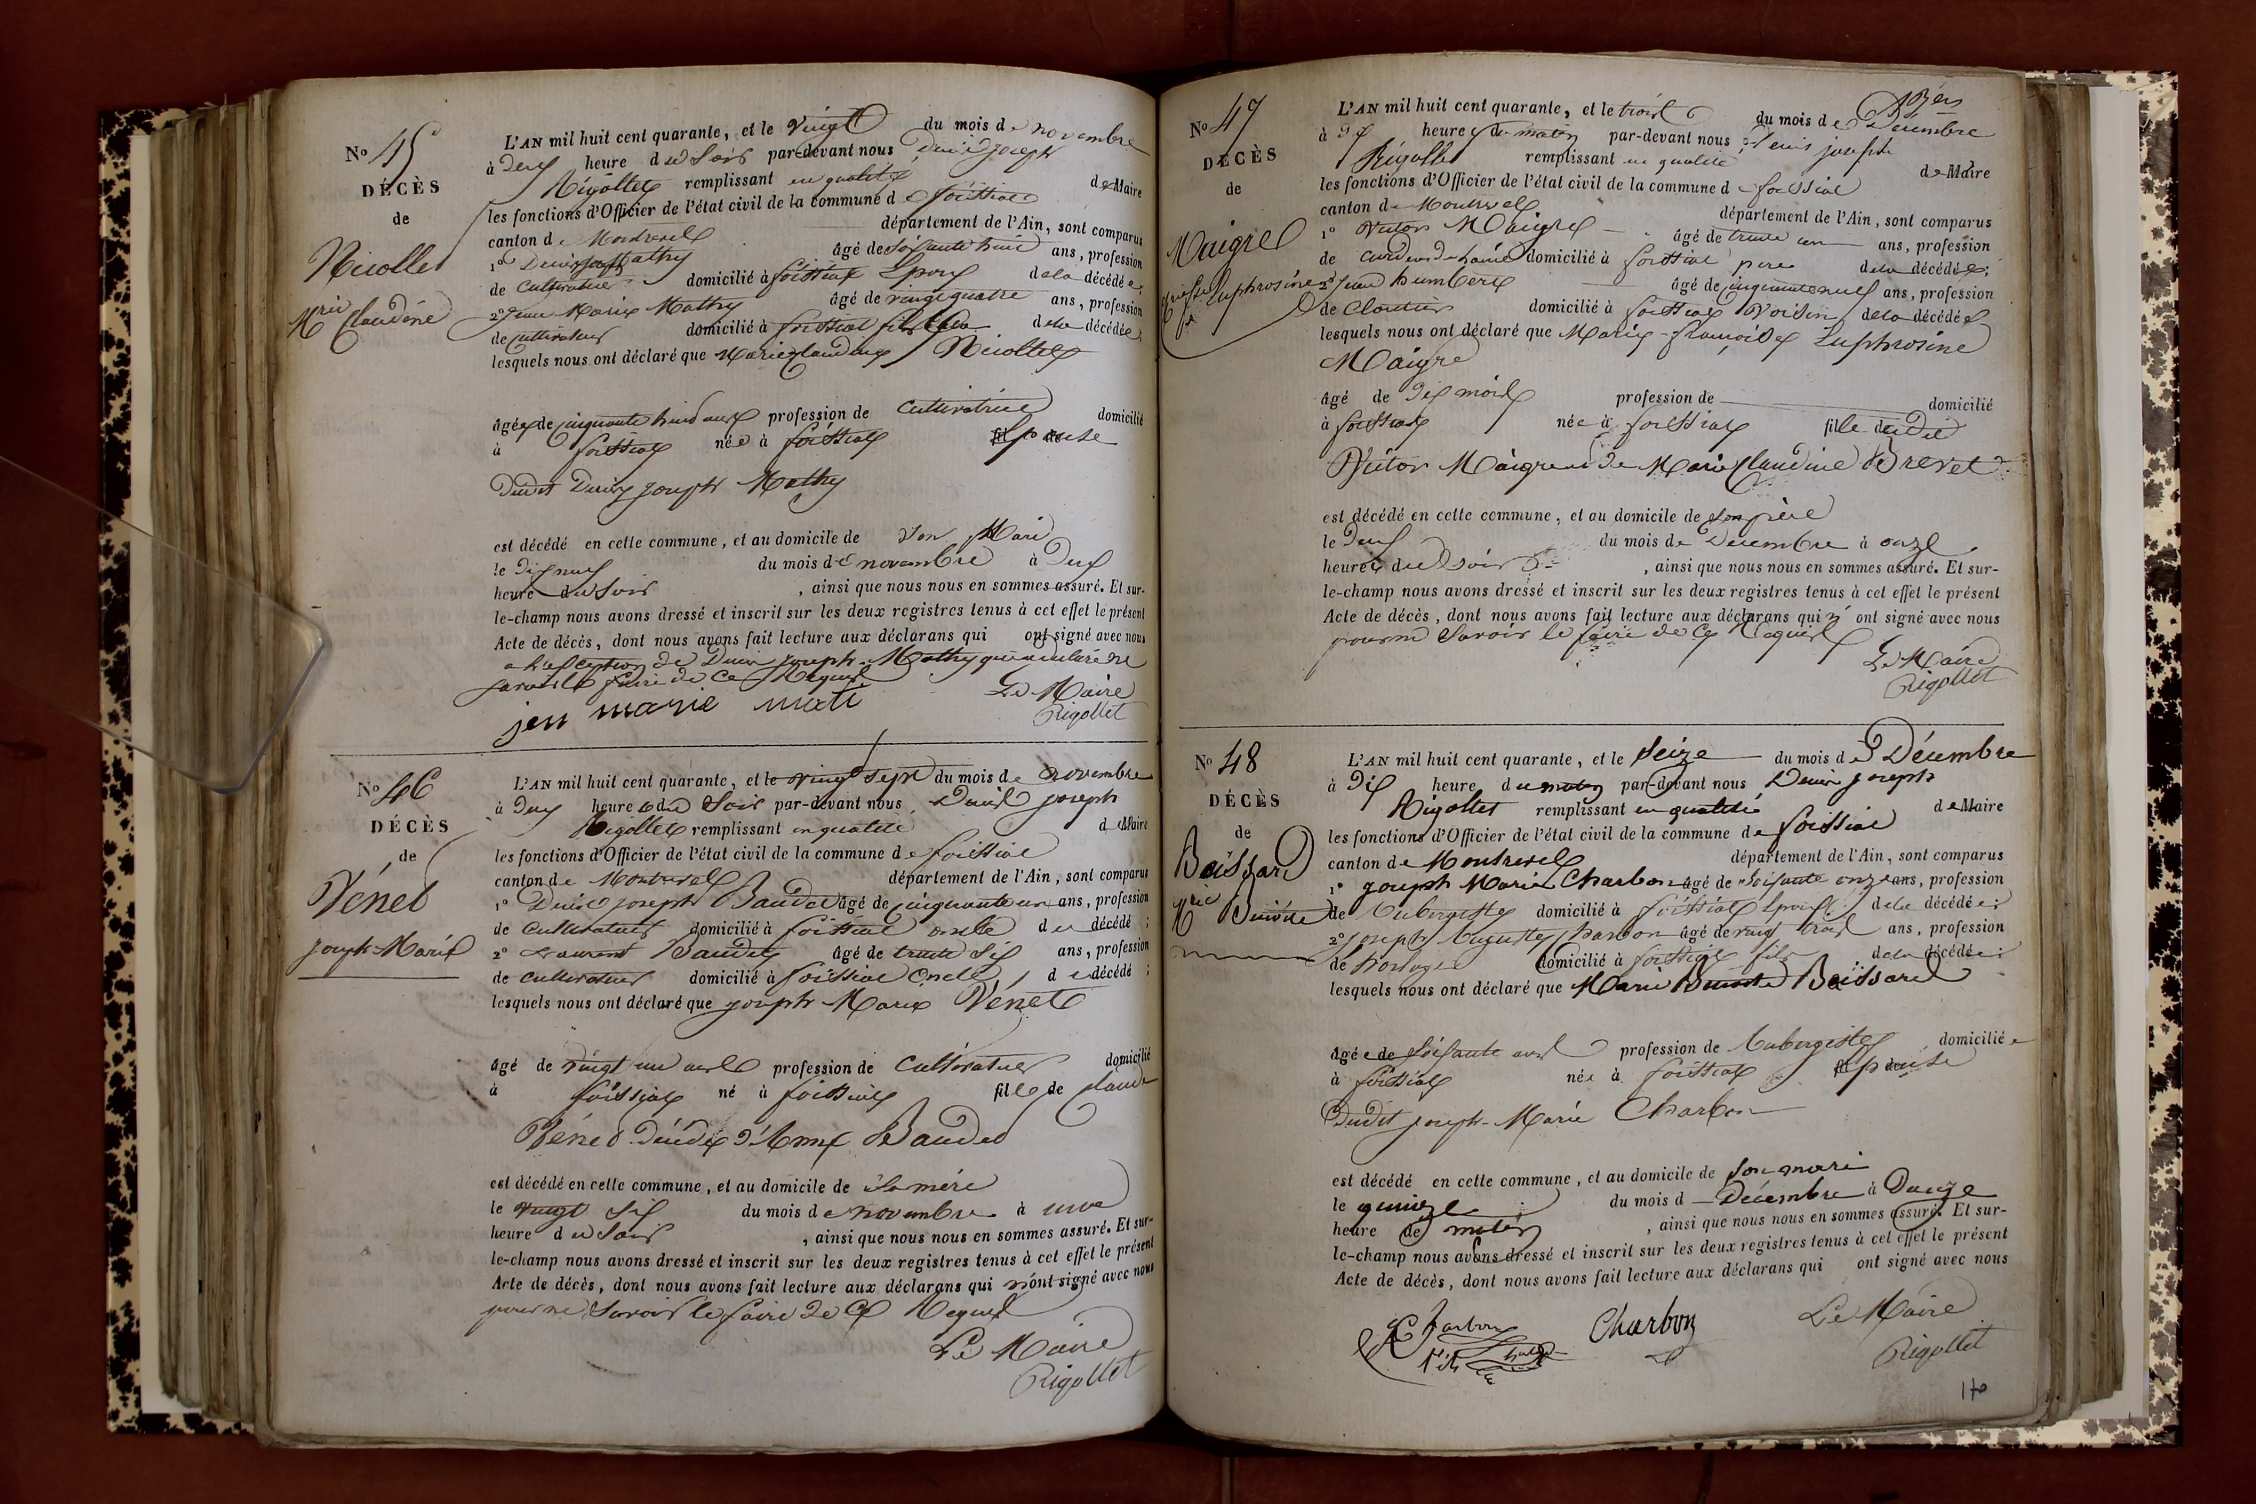 N° 45
DÉCÈS
de
Nicollet
Mrie Claudine
L'AN mil huit cent quarante, et le vingt du mois de novembre
à deux heure du Soir par-devant nous Denis joseph
Rigollet remplissant en qualité de Maire
les fonctions d'Officier de l'état civil de la commune de foissiat
canton de Montrevel département de l'Ain, sont comparus
1° Denis joseph Mathy âgé de soixante huit ans, profession
de Cultivateur domicilié à foissiat Epoux de la décédée
2° jean Marie Mathy âgé de vingt quatre ans, profession
de cultivateur domicilié à foissiat fils de la décédée
lesquels nous ont déclaré que Marie Claudine Nicollet
âgée de cinquante huit ans profession de Cultivatrice domicilié
à foissiat née à foissiat Epouse
dudit Denis joseph Mathy
est décédé en cette commune, et au domicile de son Mari
le dix neuf du mois de novembre à deux
heure du Soir, ainsi que nous nous en sommes assuré. Et sur-
le-champ nous avons dressé et inscrit sur les deux registres tenus à cet effet le présent
Acte de décès, dont nous avons fait lecture aux déclarans qui ont signé avec nous
a l'exception de Denis joseph Mathy qui a déclaré ne
savoir le faire de ce Requis
jen marie mati
Le Maire
Rigollet
N° 46
DÉCÈS
de
Vénet
joseph Marie
L'AN mil huit cent quarante, et le vingt sept du mois de novembre
à deux heure du Soir par-devant nous Denis joseph
Rigollet remplissant en qualité de Maire
les fonctions d'Officier de l'état civil de la commune de foissiat
canton de Montrevel département de l'Ain, sont comparus
1° Denis joseph Baudet âgé de cinquante un ans, profession
de Cultivateur domicilié à foissiat oncle du décédé;
2° Laurent Baudet âgé de trente six ans, profession
de Cultivateur domicilié à foissiat Oncle du décédé;
lesquels nous ont déclaré que joseph Marie Vénet
âgé de vingt un ans profession de Cultivateur domicilié
à foissiat né à foissiat fils de Claude
Vénet décédé d'Anne Baudet
est décédé en cette commune, et au domicile de Sa mère
le vingt six du mois de novembre à une
heure du Soir, ainsi que nous nous en sommes assuré. Et sur-
le-champ nous avons dressé et inscrit sur les deux registres tenus à cet effet le présent
Acte de décès, dont nous avons fait lecture aux déclarans qui n'ont signé avec nous
pour ne Savoir le faire de ce Requis
Le Maire
Rigollet
N° 47
DÉCÈS
de
Maigre
Euphrosine
L'AN mil huit cent quarante, et le trois du mois de Décembre
à dix heures du matin par-devant nous Denis joseph
Rigollet remplissant en qualité de Maire
les fonctions d'Officier de l'état civil de la commune de foissiat
canton de Montrevel département de l'Ain, sont comparus
1° Victor Maigre âgé de trente un ans, profession
de domicilié à foissiat père de la décédée;
2° jean humbert âgé de cinquante neuf ans, profession
de Cloutier domicilié à foissiat Voisin de la décédée
lesquels nous ont déclaré que Marie françoise Euphrosine
Maigre
âgé de dix mois profession de domicilié
à foissiat née à foissiat fille dudit
Victor Maigre et de Marie Claudine Brevet
est décédé en cette commune, et au domicile de son père
le deux du mois de Décembre à onze
heures du soir, ainsi que nous nous en sommes assuré. Et sur-
le-champ nous avons dressé et inscrit sur les deux registres tenus à cet effet le présent
Acte de décès, dont nous avons fait lecture aux déclarans qui n'ont signé avec nous
pour ne Savoir le faire de ce Requis
Le Maire
Rigollet
N° 48
DÉCÈS
de
Boissard
Mrie Benoite
L'AN mil huit cent quarante, et le Seize du mois de Décembre
à dix heure du matin par-devant nous Denis joseph
Rigollet remplissant en qualité de Maire
les fonctions d'Officier de l'état civil de la commune de foissiat
canton de Montrevel département de l'Ain, sont comparus
1° joseph Marie Charbon âgé de soixante onze ans, profession
de Aubergiste domicilié à foissiat Epoux de la décédée;
2° joseph Auguste Charbon âgé de vingt trois ans, profession
de horloger domicilié à foissiat fils de la décédée;
lesquels nous ont déclaré que Marie Benoite Boissard
âgée de soixante ans profession de Aubergiste domiciliée
à foissiat née à foissiat Epouse
dudit joseph Marie Charbon
est décédé en cette commune, et au domicile de son mari
le quinze du mois de Décembre à Onze
heure de matin, ainsi que nous nous en sommes assuré. Et sur-
le-champ nous avons dressé et inscrit sur les deux registres tenus à cet effet le présent
Acte de décès, dont nous avons fait lecture aux déclarans qui ont signé avec nous
Charbon
Charbon
Le Maire
Rigollet
170